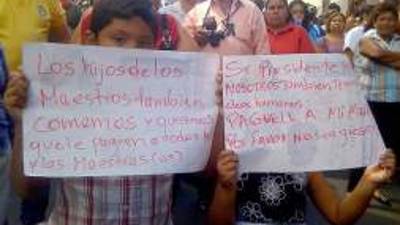 Los hijos de los
Maestros también
comemos y queremos
que le paguen a todos
y las Maestras (os)
Sr Presidente
NOSOTROS también
humanos
PAGUELE A MI
Por favor No sea